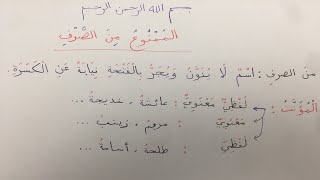 بسم الله الرحمن الرحيم
المَمْنُوعُ مِنَ الصَّرْفِ
من الصرفِ : اسْمٌ لَا يُنَوَّنُ وَيُجَرُّ بِالفَتْحَةِ نِيَابَةً عَنِ الكَسْرَةِ.
المُؤَنَّثُ : لَفْظِيٌّ مَعْنَوِيٌّ : عائشة ، خديجة ...
مَعْنَوِيٌّ : مريم ، زينب ...
لَفْظِيٌّ : طلحة ، أسامة ...